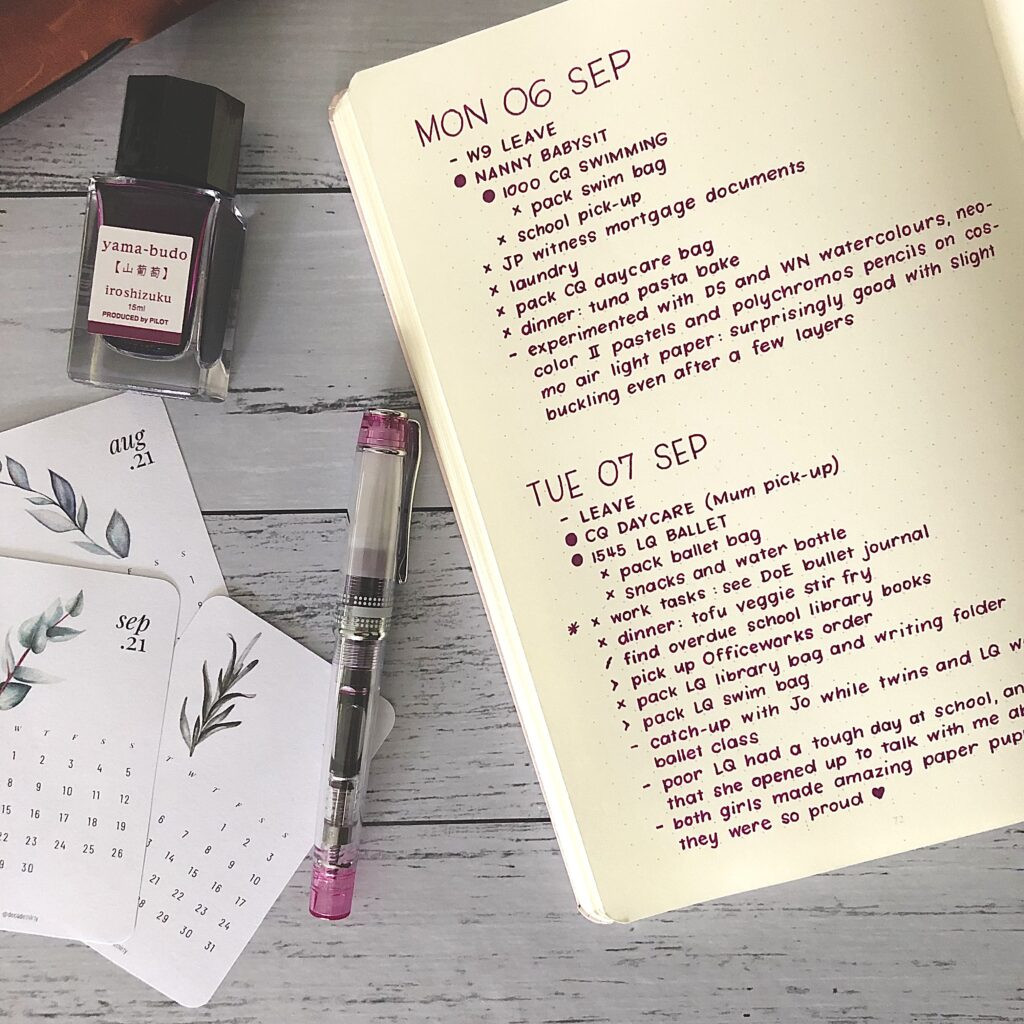 yama-budo
【山葡萄】
iroshizuku
15ml
PRODUCED by PILOT
aug
.21
S
1
sep
.21
W T F S S
1 2 3 4 5
8 9 10 11 12
15 16 17 18 19
22 23 24 25 26
9 30
@decadethirty
T W T F S S
6 7 1 2 3
14 8 9 10
15 16 17
21 22 23 24
28 29 30 31
MON 06 SEP
- W9 LEAVE
● NANNY BABYSIT
● 1000 CQ SWIMMING
x pack swim bag
x school pick-up
x JP witness mortgage documents
x laundry
x pack CQ daycare bag
x dinner: tuna pasta bake
- experimented with DS and WN watercolours, neo-
color II pastels and polychromos pencils on cos-
mo air light paper: surprisingly good with slight
buckling even after a few layers
TUE 07 SEP
- LEAVE
● CQ DAYCARE (Mum pick-up)
● 1545 LQ BALLET
x pack ballet bag
x snacks and water bottle
* x work tasks: see DoE bullet journal
x dinner: tofu veggie stir fry
/ find overdue school library books
> pick up Officeworks order
x pack LQ library bag and writing folder
> pack LQ swim bag
- catch-up with Jo while twins and LQ
ballet class
- poor LQ had a tough day at school,
that she opened up to talk with me
- both girls made amazing paper
they were so proud ♥
72